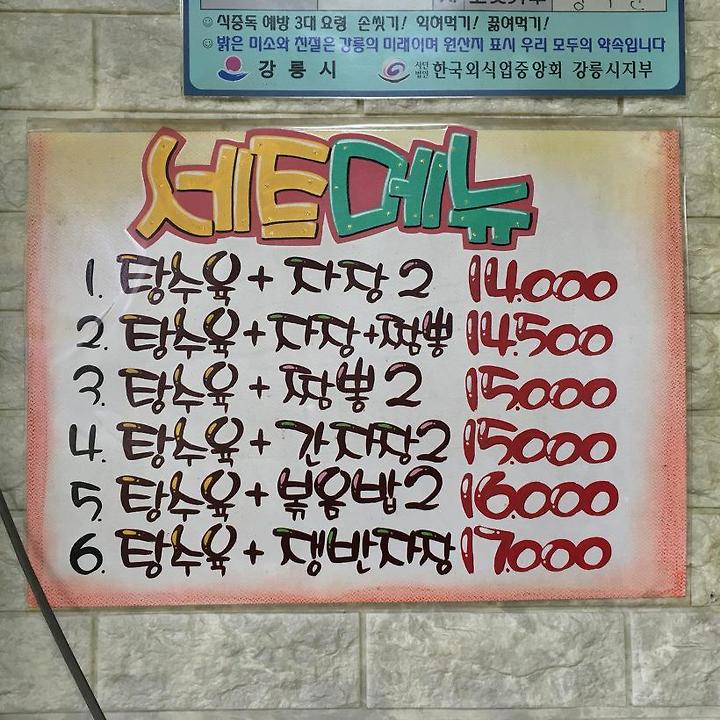 식중독 예방 3대 요령 손씻기! 익혀먹기! 끓여먹기!
밝은 미소와 친절은 강릉의 미래이며 원산지 표시 우리 모두의 약속입니다
강릉시 사단법인 한국외식업중앙회 강릉시지부
세트메뉴
1. 탕수육 + 자장 2 14.000
2. 탕수육 + 자장 + 짬뽕 14.500
3. 탕수육 + 짬뽕 2 15.000
4. 탕수육 + 간자장 2 15.000
5. 탕수육 + 볶음밥 2 16.000
6. 탕수육 + 쟁반자장 17.000